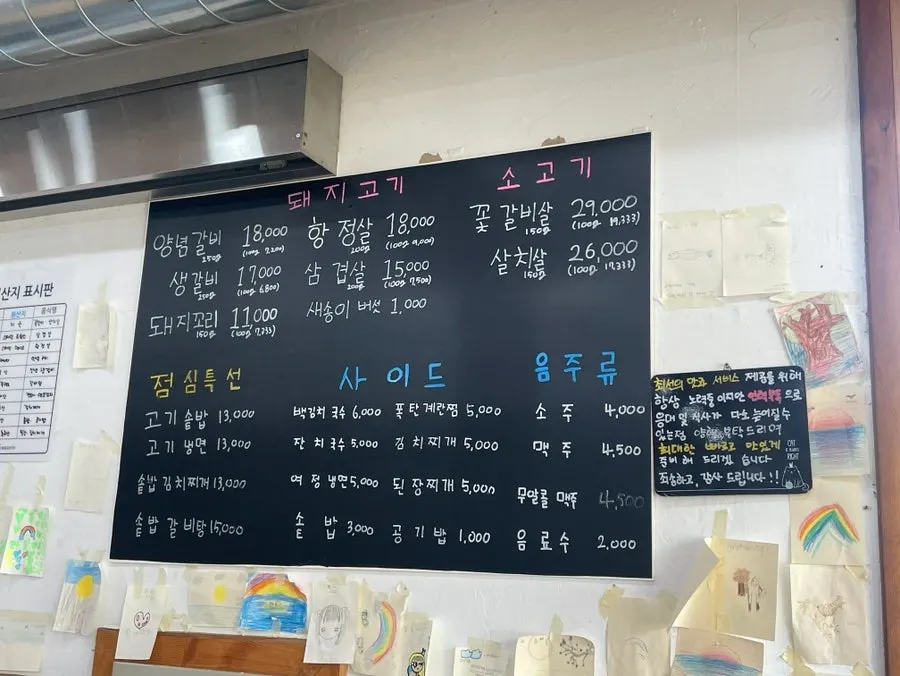 돼지고기
양념갈비 250g 18,000 (100g 7,200)
생갈비 250g 17,000 (100g 6,800)
돼지꼬리 150g 11,000 (100g 7,333)
항정살 200g 18,000 (100g 9,000)
삼겹살 200g 15,000 (100g 7,500)
새송이 버섯 1,000
소고기
꽃갈비살 150g 29,000 (100g 19,333)
살치살 150g 26,000 (100g 17,333)
점심특선
고기솥밥 13,000
고기냉면 13,000
솥밥김치찌개 13,000
솥밥갈비탕 15,000
사이드
백김치국수 6,000
잔치국수 5,000
여정냉면 5,000
솥밥 3,000
폭탄계란찜 5,000
김치찌개 5,000
된장찌개 5,000
공기밥 1,000
음주류
소주 4,000
맥주 4,500
무알콜 맥주 4,500
음료수 2,000
산지 표시판
원산지
음식명
최선의 맛과 서비스 제공을 위해
항상 노력중 이지만 인력부족으로
응대 및 식사가 다소 늦어질수
있는점 양해 부탁드리며
최대한 빠르고 맛있게
준비해 드리겠습니다
죄송하고, 감사 드립니다!!